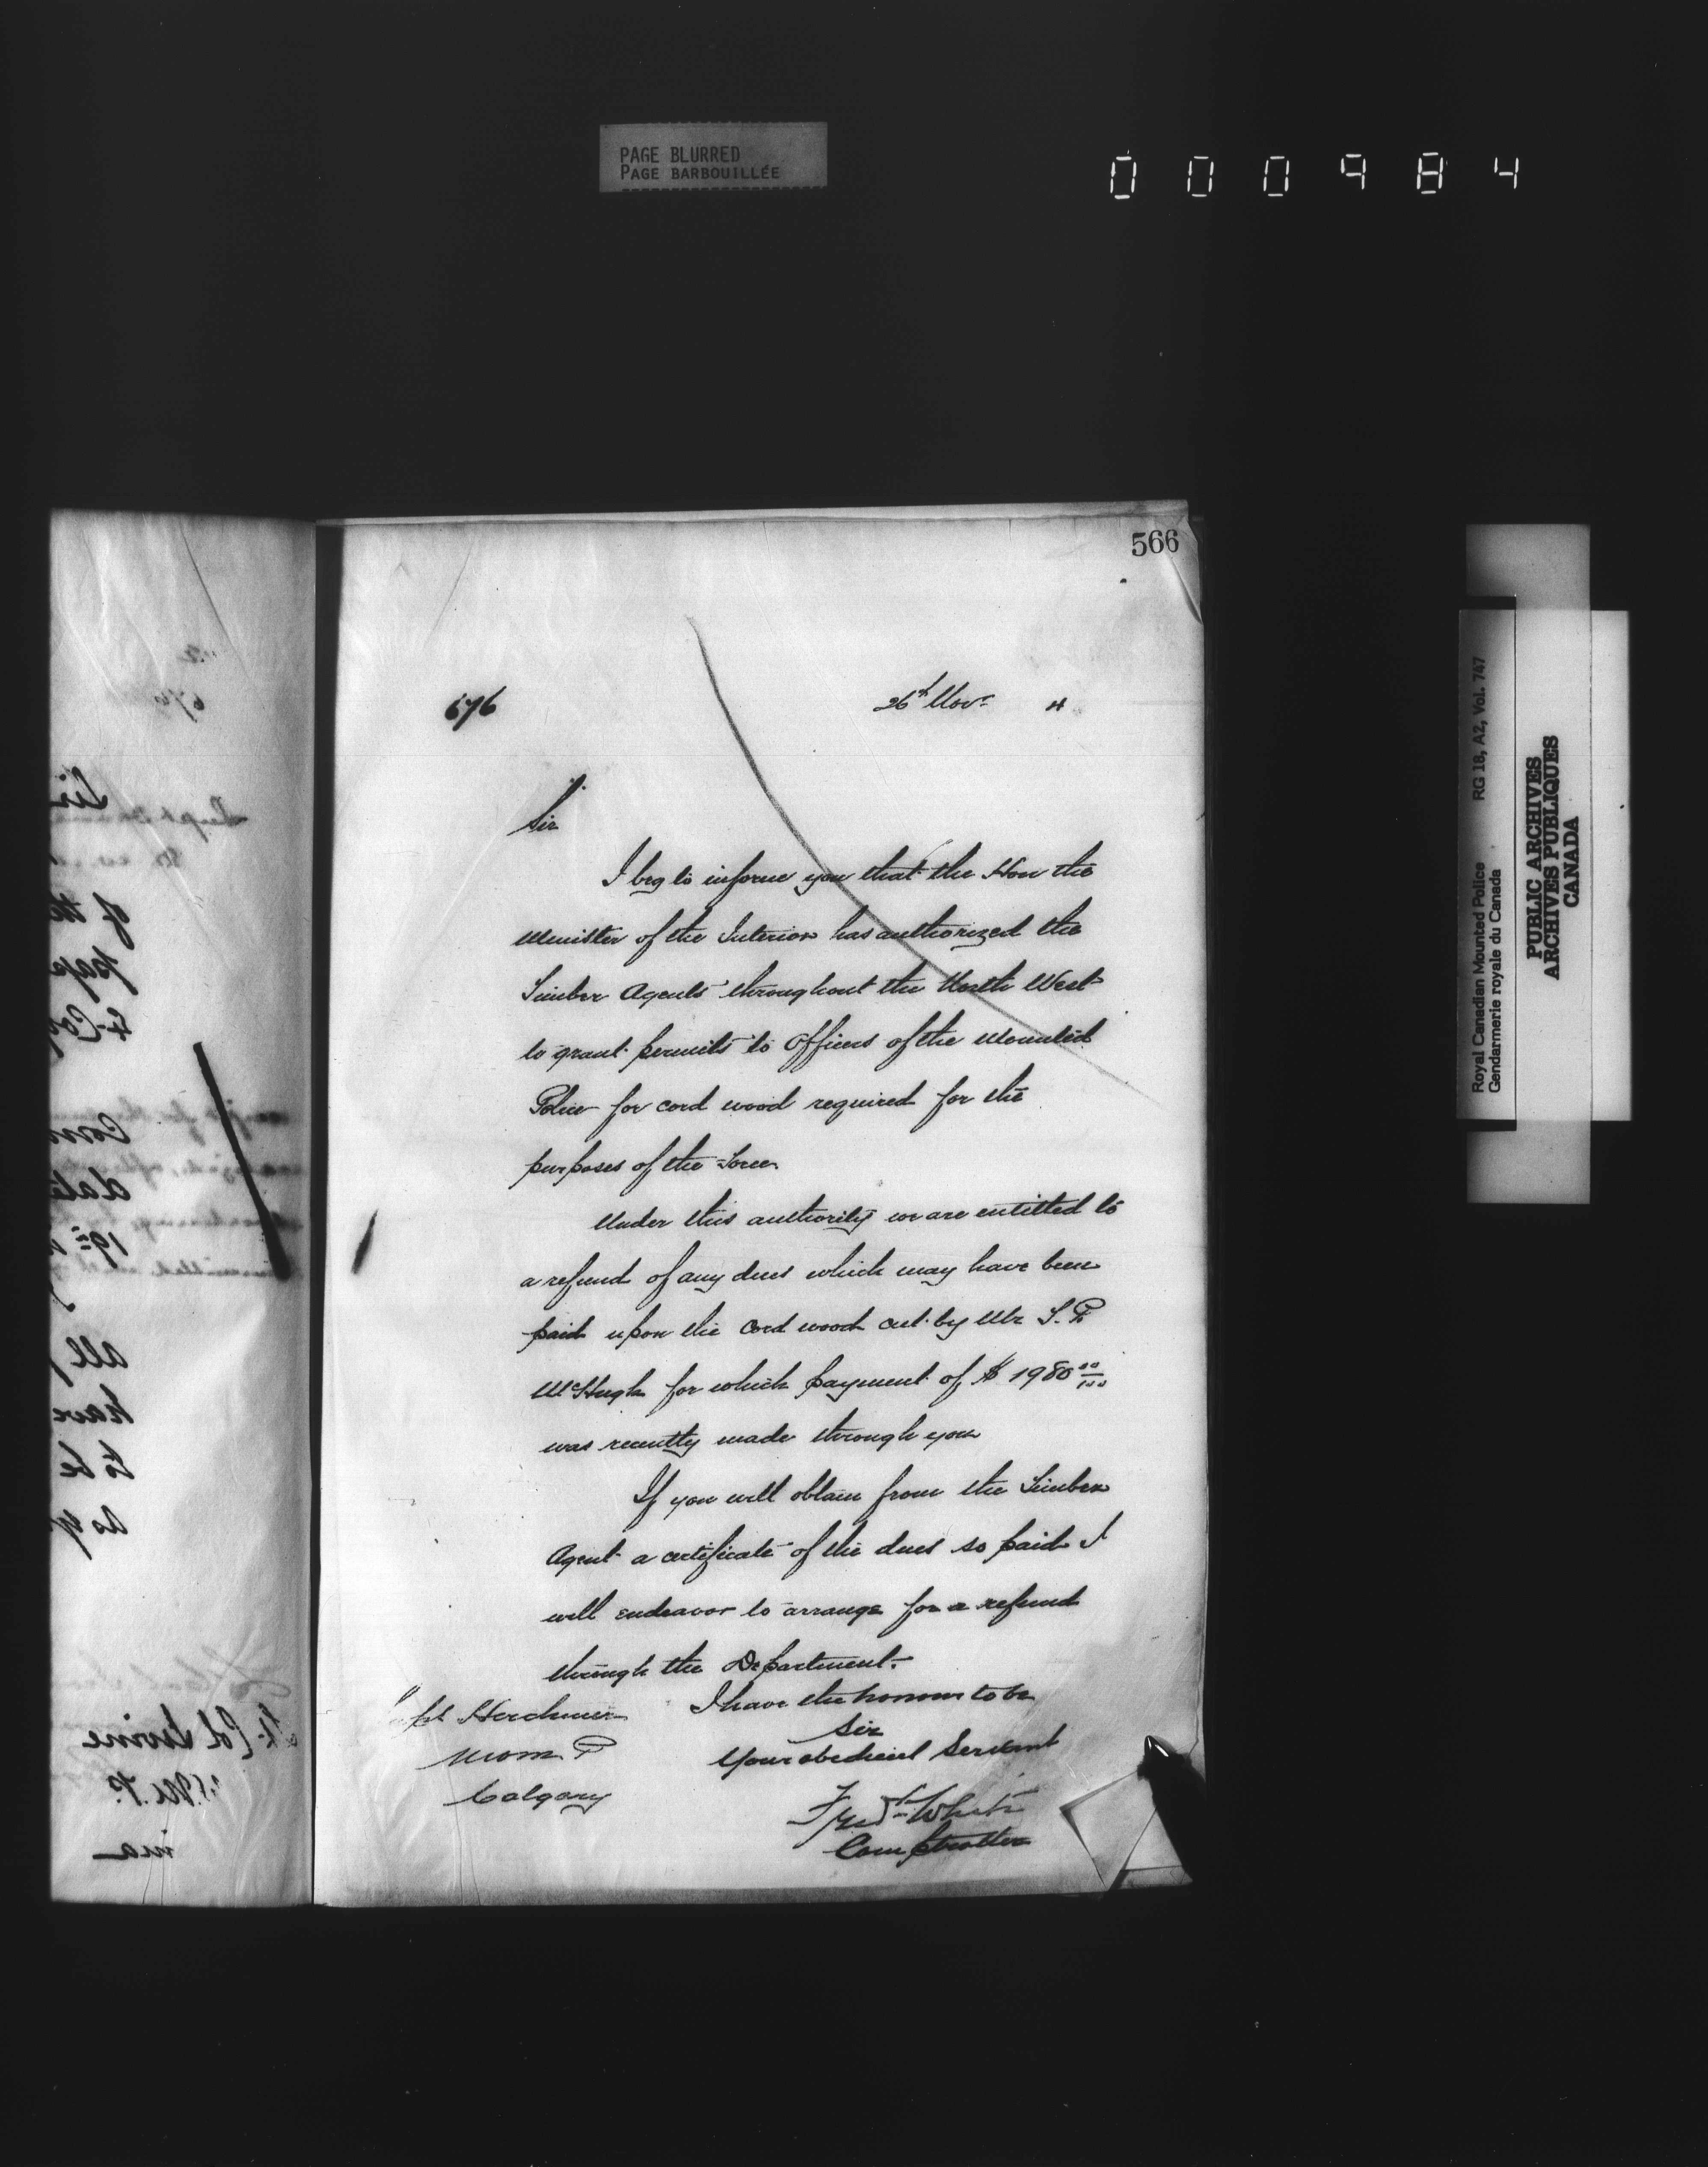 PAGE BLURRED
PAGE BARBOUILLÉE
000984
566
676
26th Novr 4
Sir
I beg to inform you that the Hon the
Minister of the Interior has authorized the
Timber Agents throughout the North West
to grant permits to Officers of the Mounted
Police for cord wood required for the
purposes of the Force.
Under this authority we are entitled to
a refund of any dues which may have been
paid upon the Cord wood cut by Mr
McHugh for which payment of $1980 00/100
was recently made through you
If you will obtain from the Timber
Agent a certificate of the dues so paid I
will endeavor to arrange for a refund
through the Department.
I have the honour to be
Sir
Your obedient Servant
Fredk White
Comptroller
Herchmer
Calgary
Royal Canadian Mounted Police RG 18, A2, Vol. 747
Gendarmerie royale du Canada
PUBLIC ARCHIVES
ARCHIVES PUBLIQUES
CANADA
Sir
of the
4
date
all
have
to be
Col Irvine